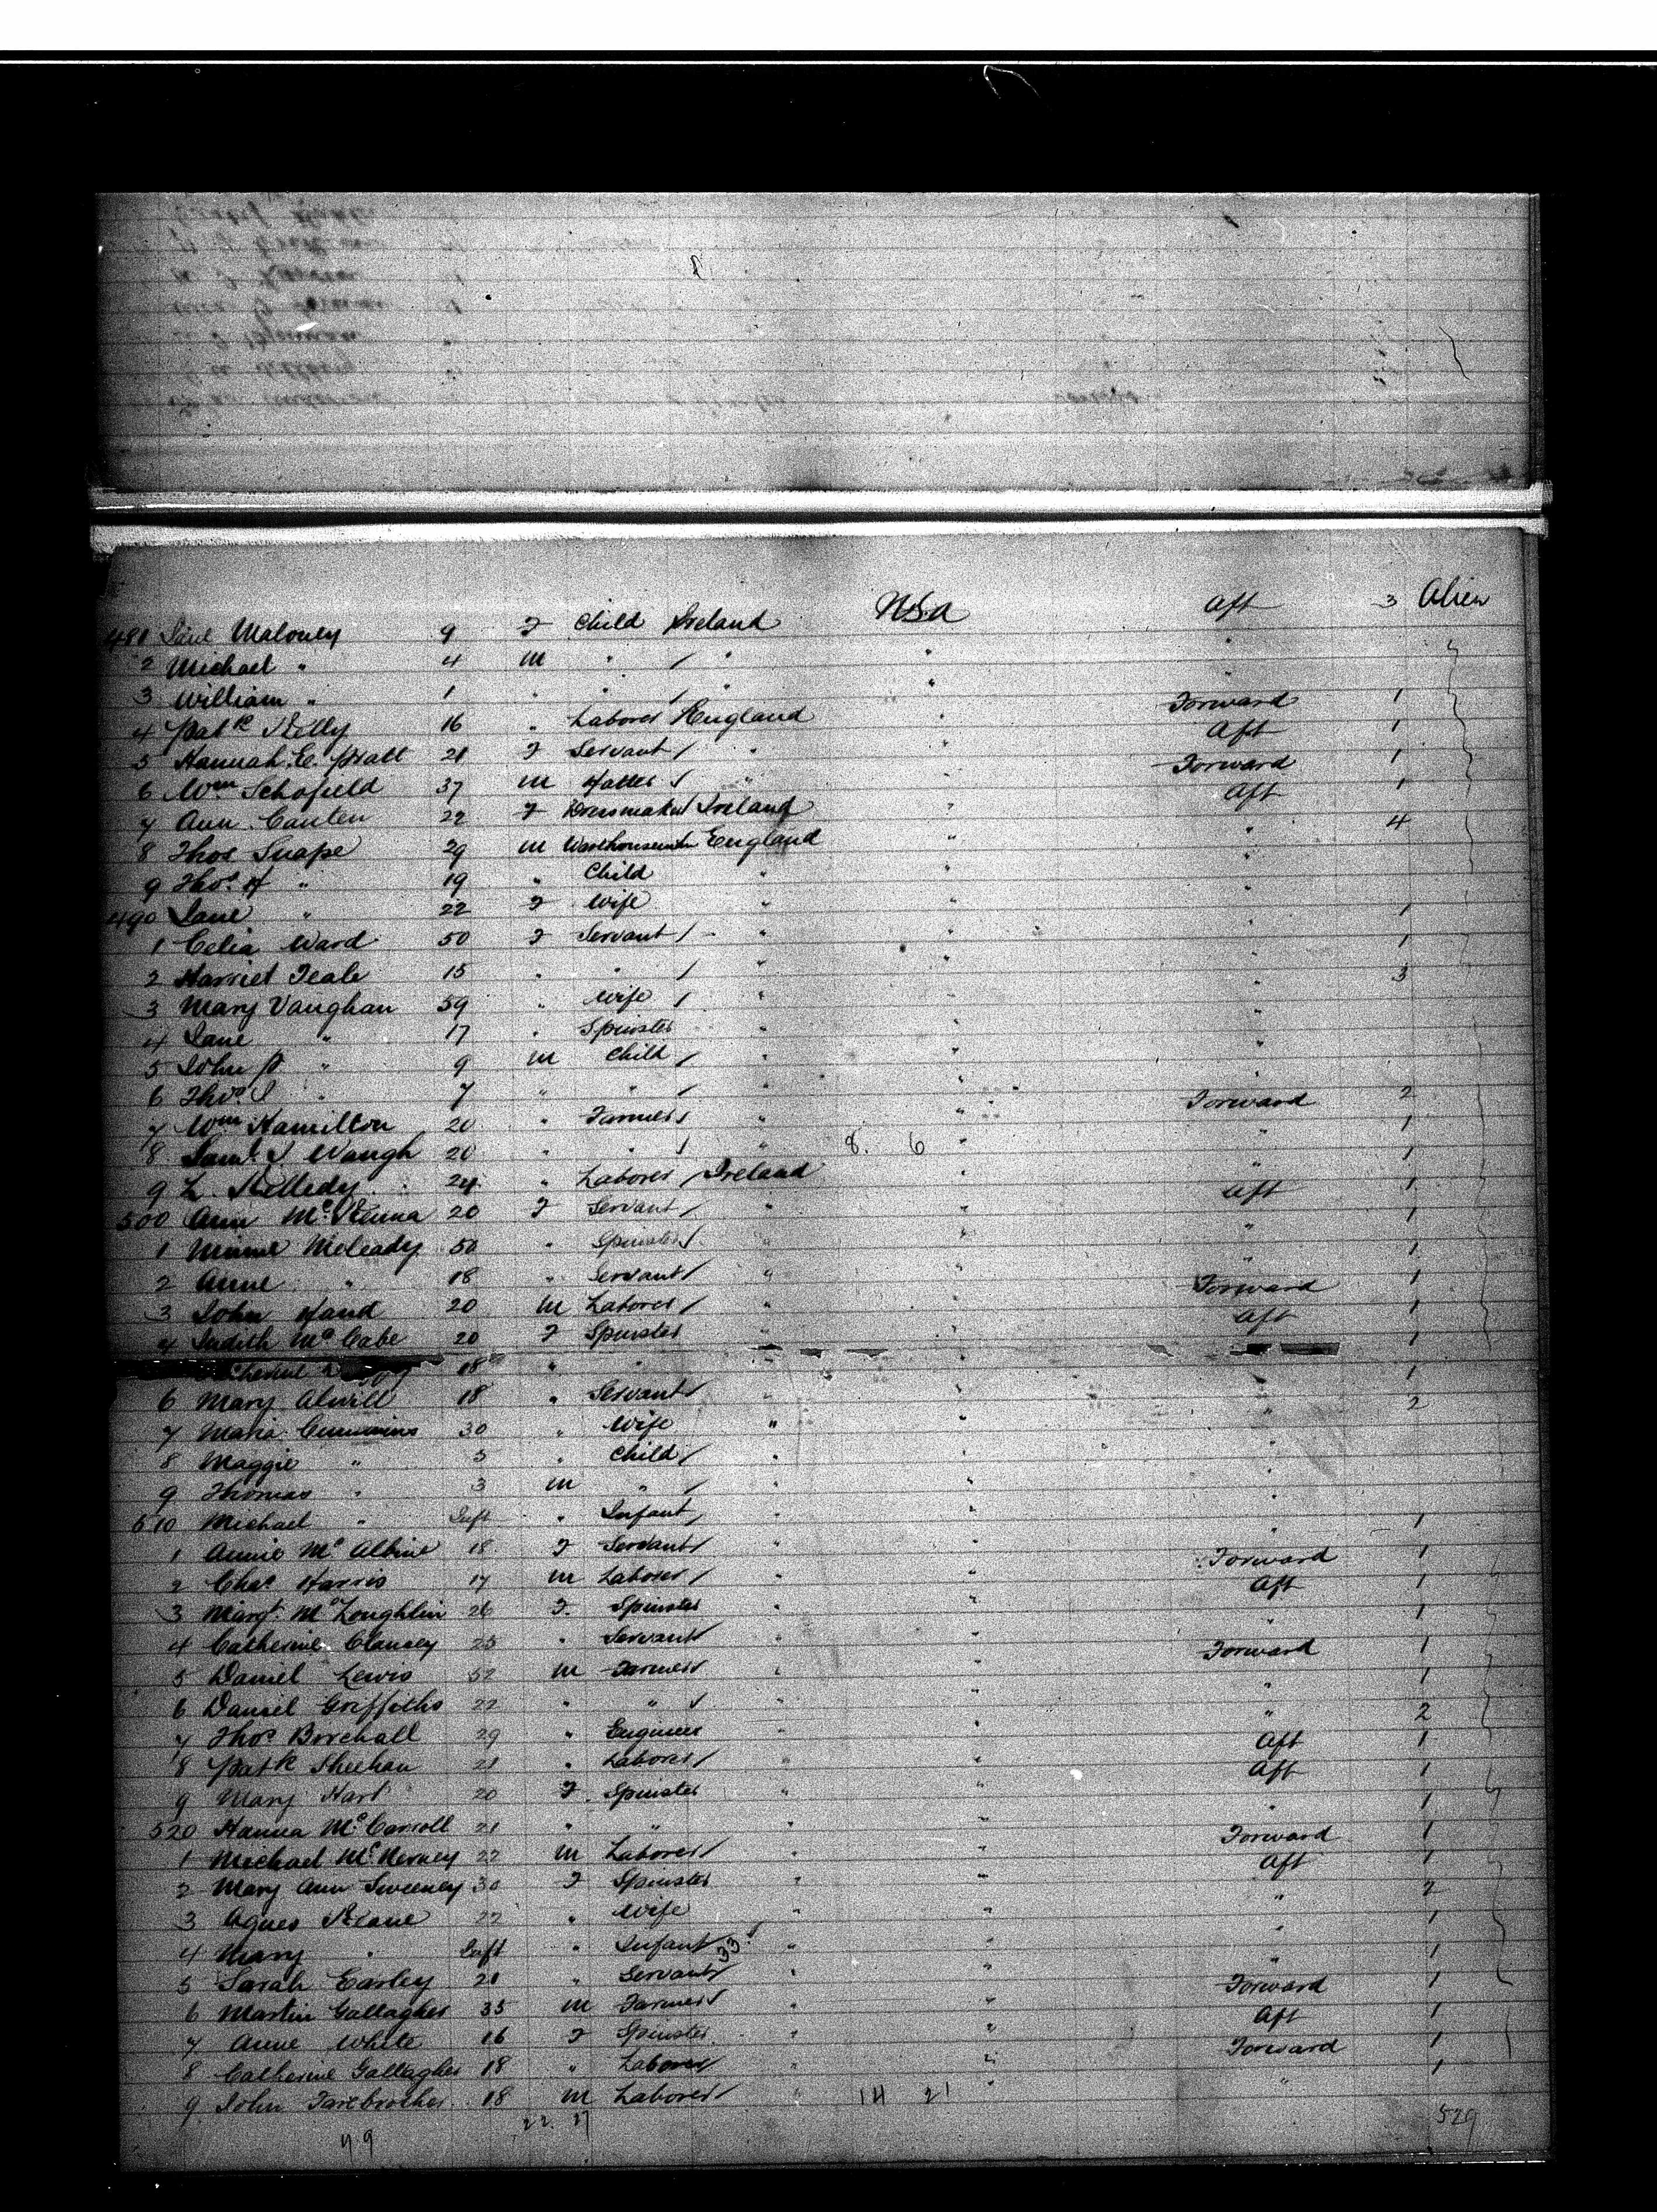 481 Jane Maloney 9 F Child Ireland USA Aft 3 Alien
2 Michael " 4 M " / " " "
3 William " 1 " " / " " "
4 Patk Kelly 16 " Laborer / England " Forward 1
5 Hannah E. Pratt 21 F Servant / " " Aft 1
6 Wm Schofield 37 M Hatter / " " Forward 1
7 Ann Canten 22 F Dressmaker / Ireland " Aft 1
8 Thos Snape 29 M Warehouseman England " " 4
9 Thos H " 19 " Child " " "
490 Jane " 22 F Wife " " "
1 Celia Ward 50 F Servant / " " " 1
2 Harriet Teale 15 " " / " " " 1
3 Mary Vaughan 39 " Wife / " " " 3
4 Jane " 17 " Spinster " " "
5 John P " 9 M Child / " " "
6 Thos " 7 " " / " " "
7 Wm Hamilton 20 " Farmer / " " Forward 2
8 Saml J. Waugh 20 " " / " 8. 6 " " 1
9 L. Kelledy 24 " Laborer / Ireland " " 1
500 Ann McKenna 20 F Servant / " " Aft 1
1 Minnie McCready 50 " Spinster / " " " 1
2 Anne " 18 " Servant / " " " 1
3 John Hand 20 M Laborer / " " Forward 1
4 Judith McCabe 20 F Spinster " " Aft 1
18 " " " " 1
6 Mary Alwill 18 " Servant / " " " 1
7 Maria Cummins 30 " Wife " " " 2
8 Maggie " 5 " Child / " " "
9 Thomas " 3 M " / " " "
510 Michael " Inft " Infant / " " "
1 Annie McAlbine 18 F Servant / " " " 1
2 Chas Harris 17 M Laborer / " " Forward 1
3 Margt. McLoughlin 26 F. Spinster " " Aft 1
4 Catherine Clancey 25 " Servant / " " " 1
5 Daniel Lewis 52 M Farmer / " " Forward 1
6 Daniel Griffiths 22 " " / " " " 1
7 Thos Birchall 29 " Engineer " " " 2
8 Patk Sheehan 21 " Laborer / " " Aft 1
9 Mary Hart 20 F. Spinster " " Aft 1
520 Hanna McCarroll 21 " " " " " 1
1 Michael McNerney 22 M Laborer / " " Forward 1
2 Mary Ann Sweeney 30 F Spinster " " Aft 1
3 Agnes Keane 22 " Wife " " " 2
4 Mary " Inft " Infant / 33 " " " 1
5 Sarah Earley 21 " Servant / " " " 1
6 Martin Gallagher 35 M Farmer / " " Forward 1
7 Anne White 16 F Spinster " " Aft 1
8 Catherine Gallagher 18 " Laborer / " " Forward 1
9 John Farebrother 18 M Laborer / " 14 21 " " 1
22. 27
49
529